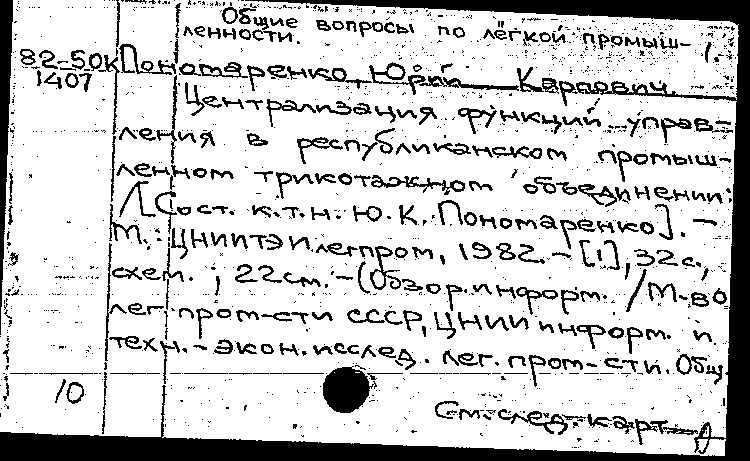 Общие вопросы по лёгкой промыш- 1.
ленности.
82-50К Пономаренко, Юрий Карпович.
1407
Централизация функций управ-
ления в республиканском промыш-
ленном трикотажном объединении:
/[Сост. к.т.н. Ю.К. Пономаренко]. -
М.: ЦНИИТЭИлегпром, 1982. - [1], 32с.,
схем. ; 22см. - (Обзор. информ. / М-во
лег. пром-сти СССР, ЦНИИ информ. и
техн.-экон. исслед. лег. пром-сти. Общ.
10
См. след. карт.